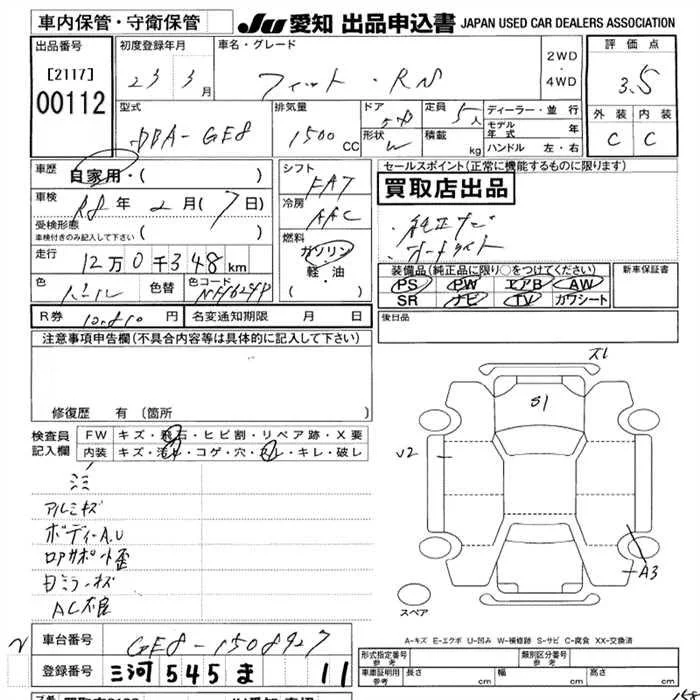 車内保管・守衛保管
JU 愛知 出品申込書 JAPAN USED CAR DEALERS ASSOCIATION
出品番号
[2117]
00112
初度登録年月
23 3月
車名・グレード
フィット・RS
2WD
・
4WD
評価点
3.5
外装 内装
C C
型式
DBA-GE8
排気量
1500 CC
ドア
5D
形状
W
定員
5人
積載
kg
ディーラー・並行
モデル年式 年
ハンドル 左・右
車歴
自家用・( )
車検
R8年 2月(7日)
受検形態
車検付きのみ記入して下さい ( )
走行
12万0千348km
色
色替
色コード
シフト
FAT
冷房
AAC
燃料
ガソリン
・
軽・油
( )
セールスポイント(正常に機能するものに限ります)
買取店出品
・純正ナビ
・オートライト
装備品(純正品に限り○をつけてください)
PS PW エアB AW
SR ナビ TV カワシート
新車保証書
R券 円
名変通知期限 月 日
後日品
注意事項申告欄(不具合内容等は具体的に記入して下さい)
修復歴 有(箇所
検査員
記入欄
FW キズ・飛石・ヒビ割・リペア跡・X要
内装 キズ・汚れ・コゲ・穴・スレ・キレ・破レ
アルミキズ
ボディーA.U
ロアサポート歪
目ミラーキズ
AC不良
S1
U2
A3
スペア
A-キズ E-エクボ U-凹み W-補修跡 S-サビ C-腐食 XX-交換済
車台番号
GE8-1508927
登録番号
三河 545 ま 11
形式指定番号
参考
類別区分番号
参考
車両証明用
参考
長さ cm 幅 cm 高さ cm